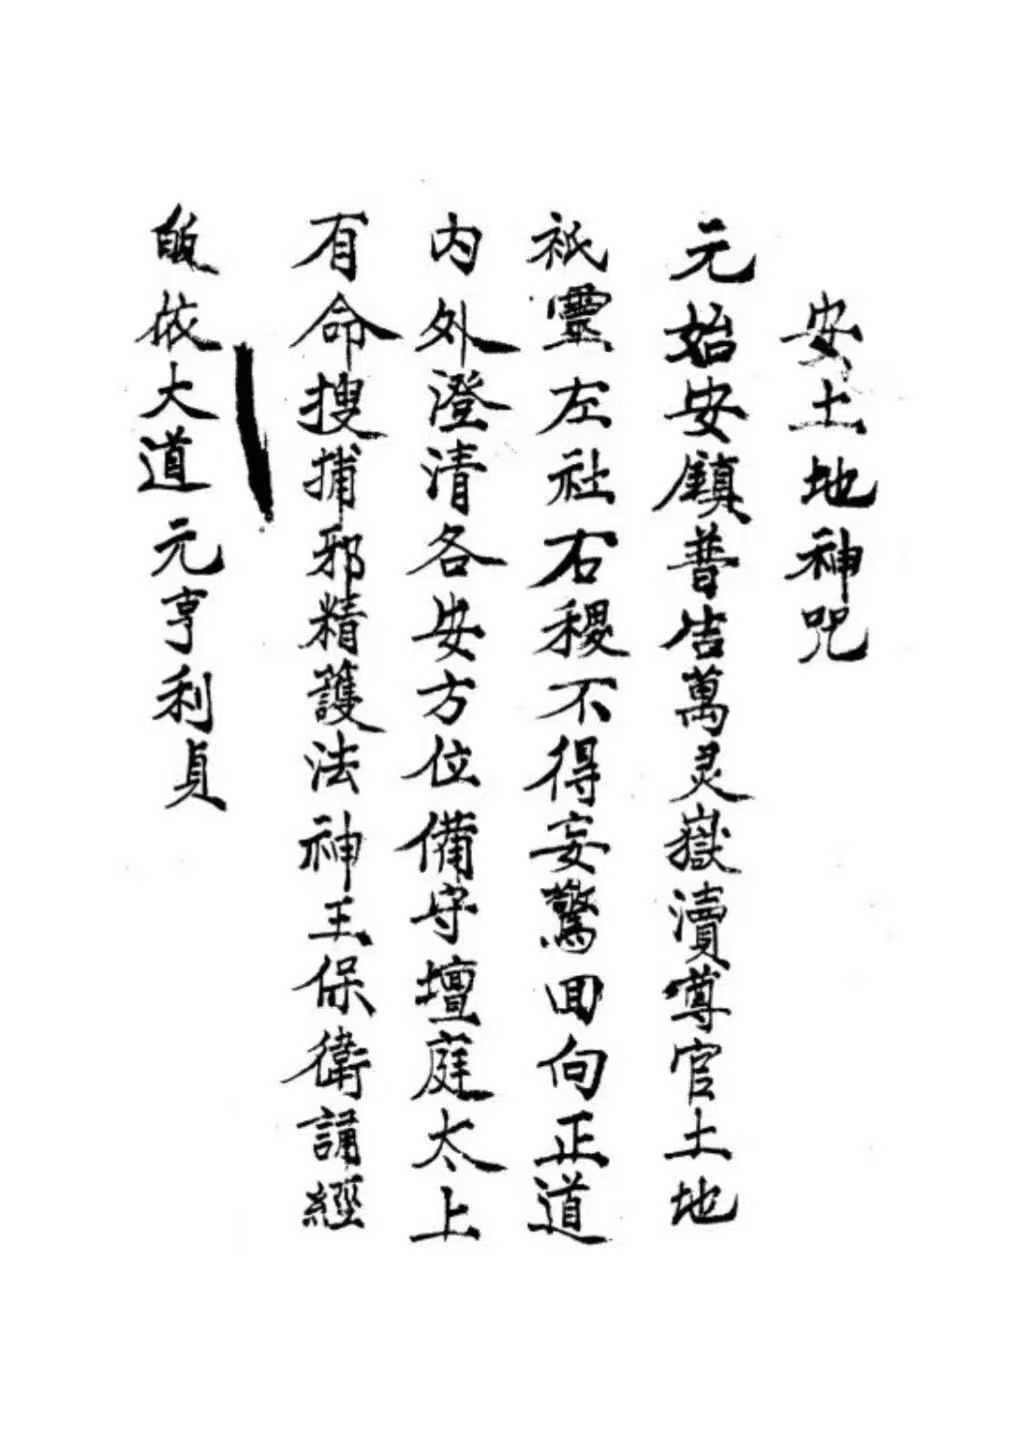 安土地神咒
元始安鎮普告萬灵嶽瀆尊官土地
祇靈左社右稷不得妄驚回向正道
内外澄清各安方位備守壇庭太上
有命搜捕邪精護法神王保衛誦經
皈依大道元亨利貞